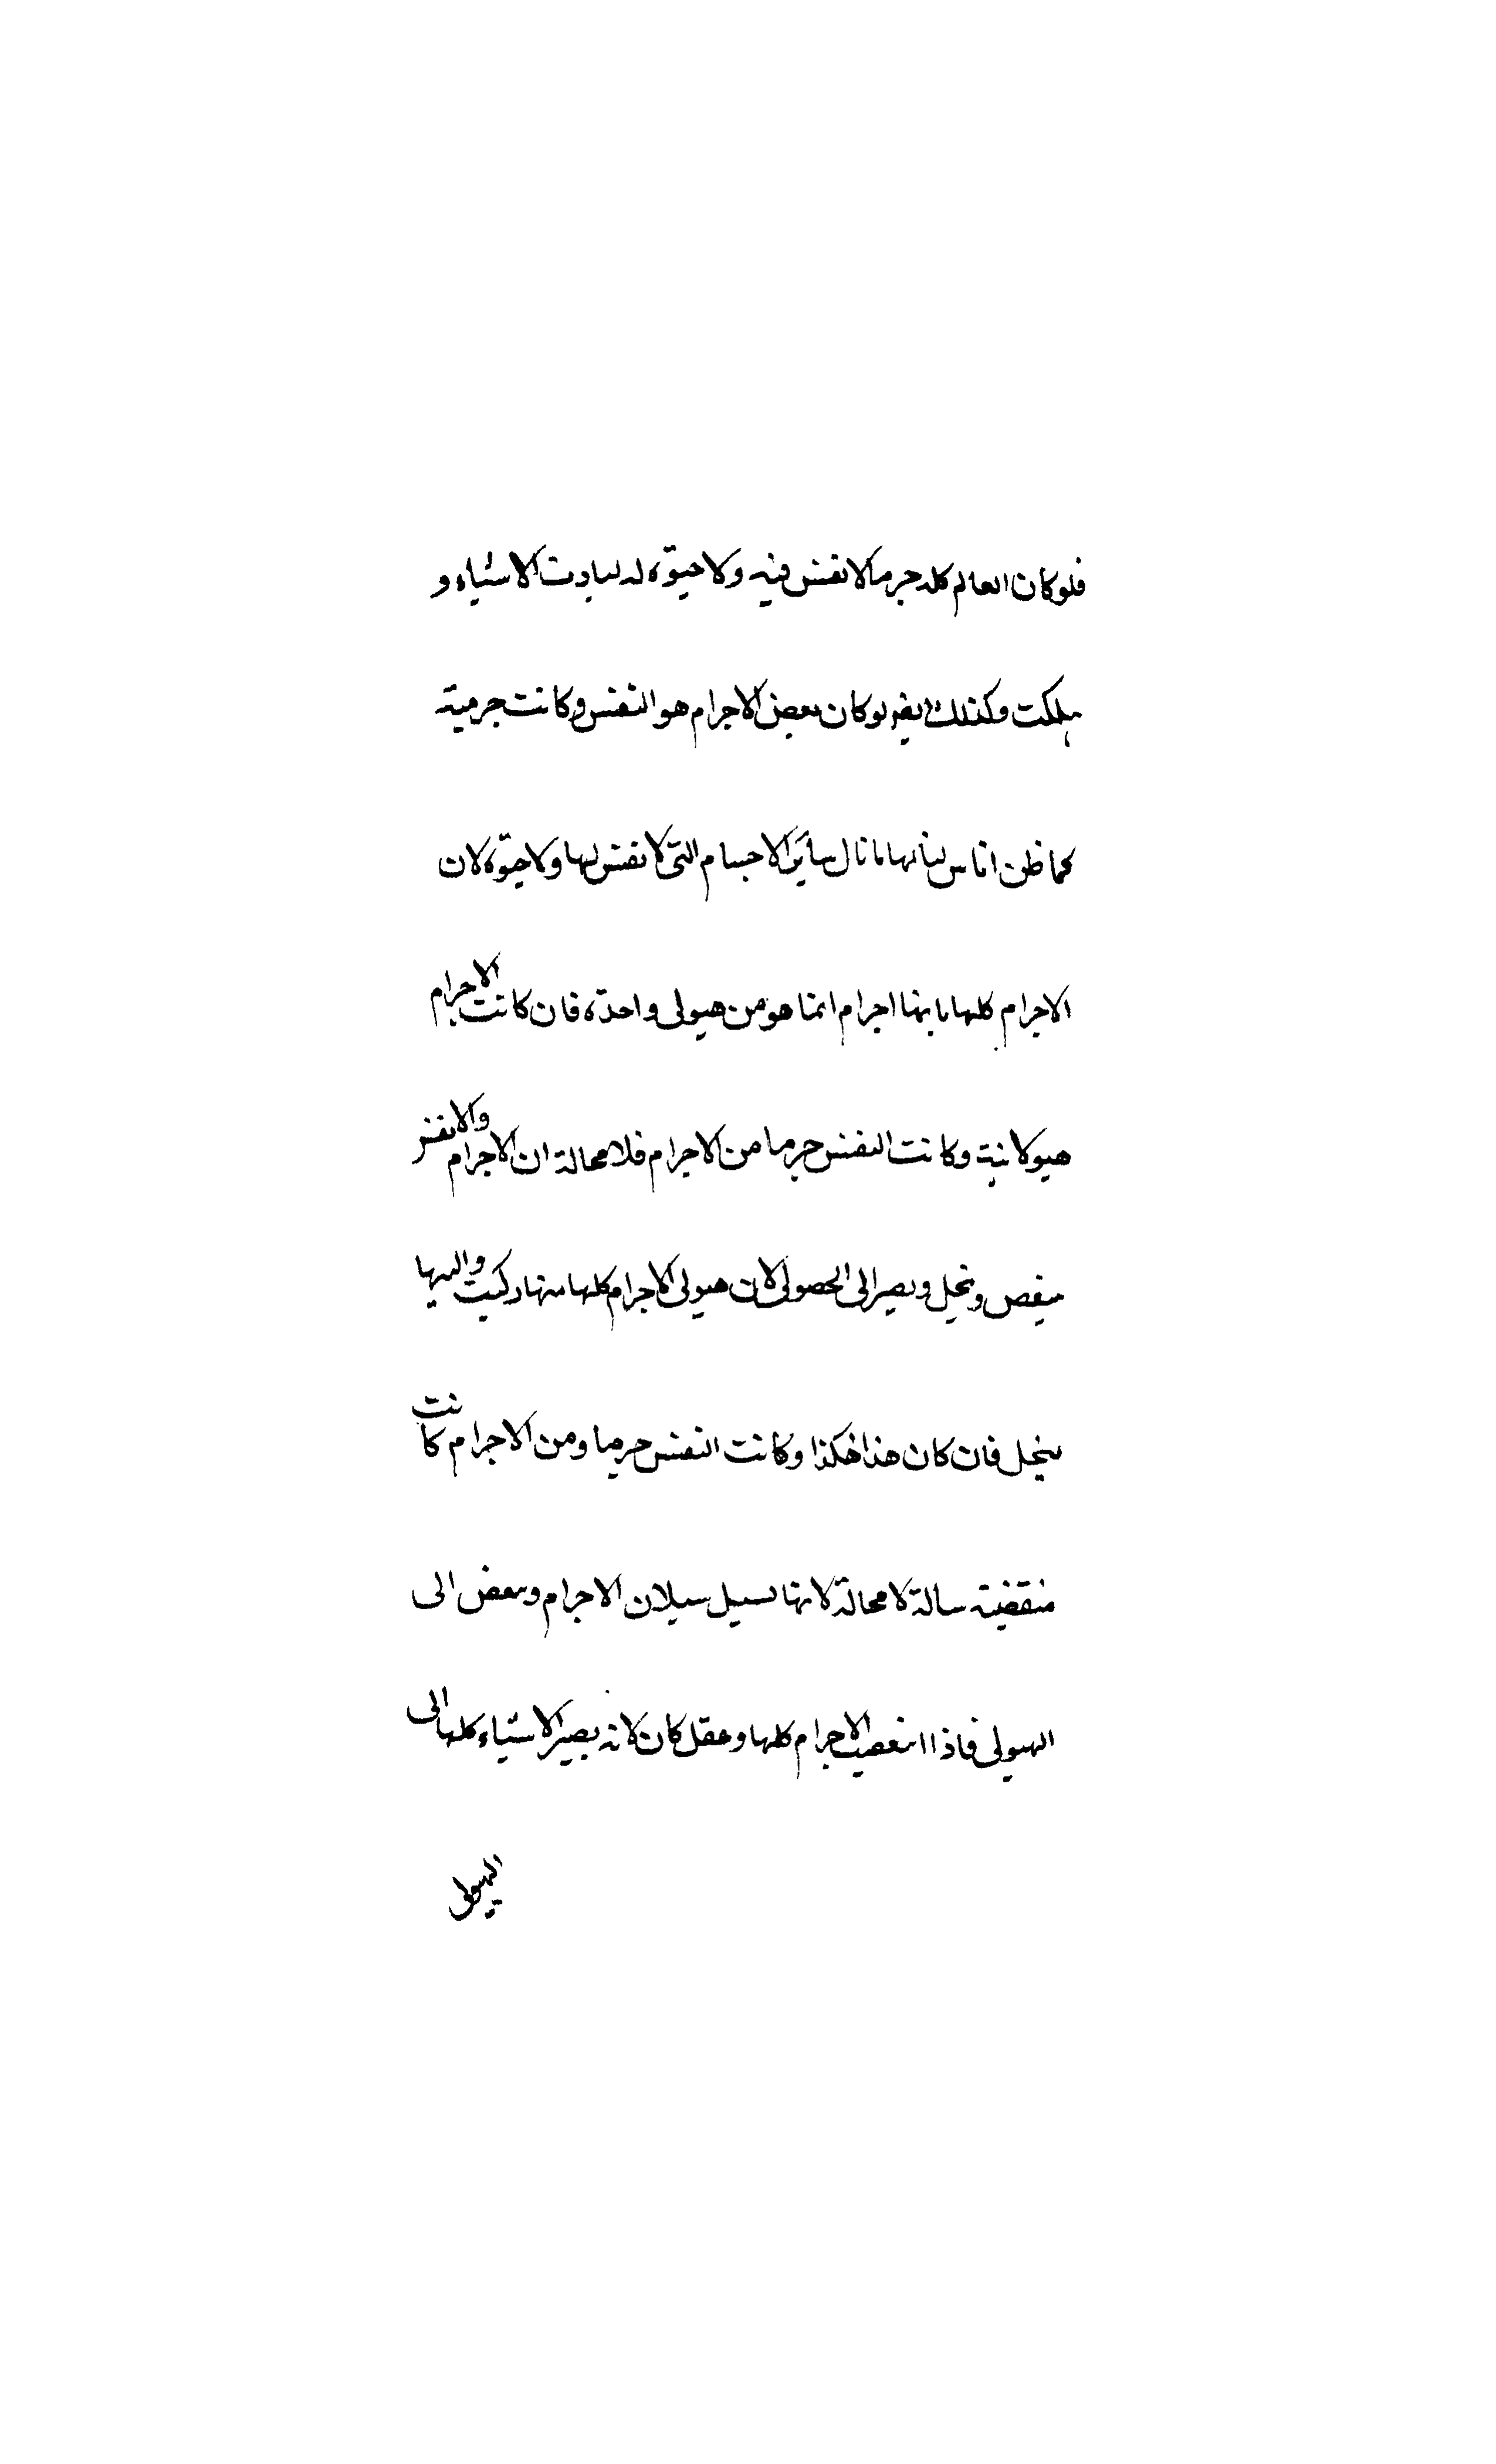 فلو كان العالم كله جرما لا نفس فيه ولا حيوة له لبادت الاشياء و
هلكت وكذلك ايضا لو كان بعض الاجرام هو النفس وكانت جرمية
كما ظن اناس لنالها ما نال سائر الاجسام التى لا نفس لها ولا حيوة لان
الاجرام كلها بانها اجرام انما هو من هيولى واحدة فان كانت الاجرام
هيولانية وكانت النفس جرما من الاجرام فلا محالة ان الاجرام والانفس
وينحل ويصير الى الهيولى لان هيولى الاجرام كلها منها ركبت واليها
ينحل فان كان هذا هكذا وكانت النفس جرميا ومن الاجرام كانت
منقضية سالة لا محالة لانها تسيل سيلان الاجرام وينفض الى
الهيولى فاذا الاجرام كلها كان لانه يصير الاشياء كلها الى
الهيولى